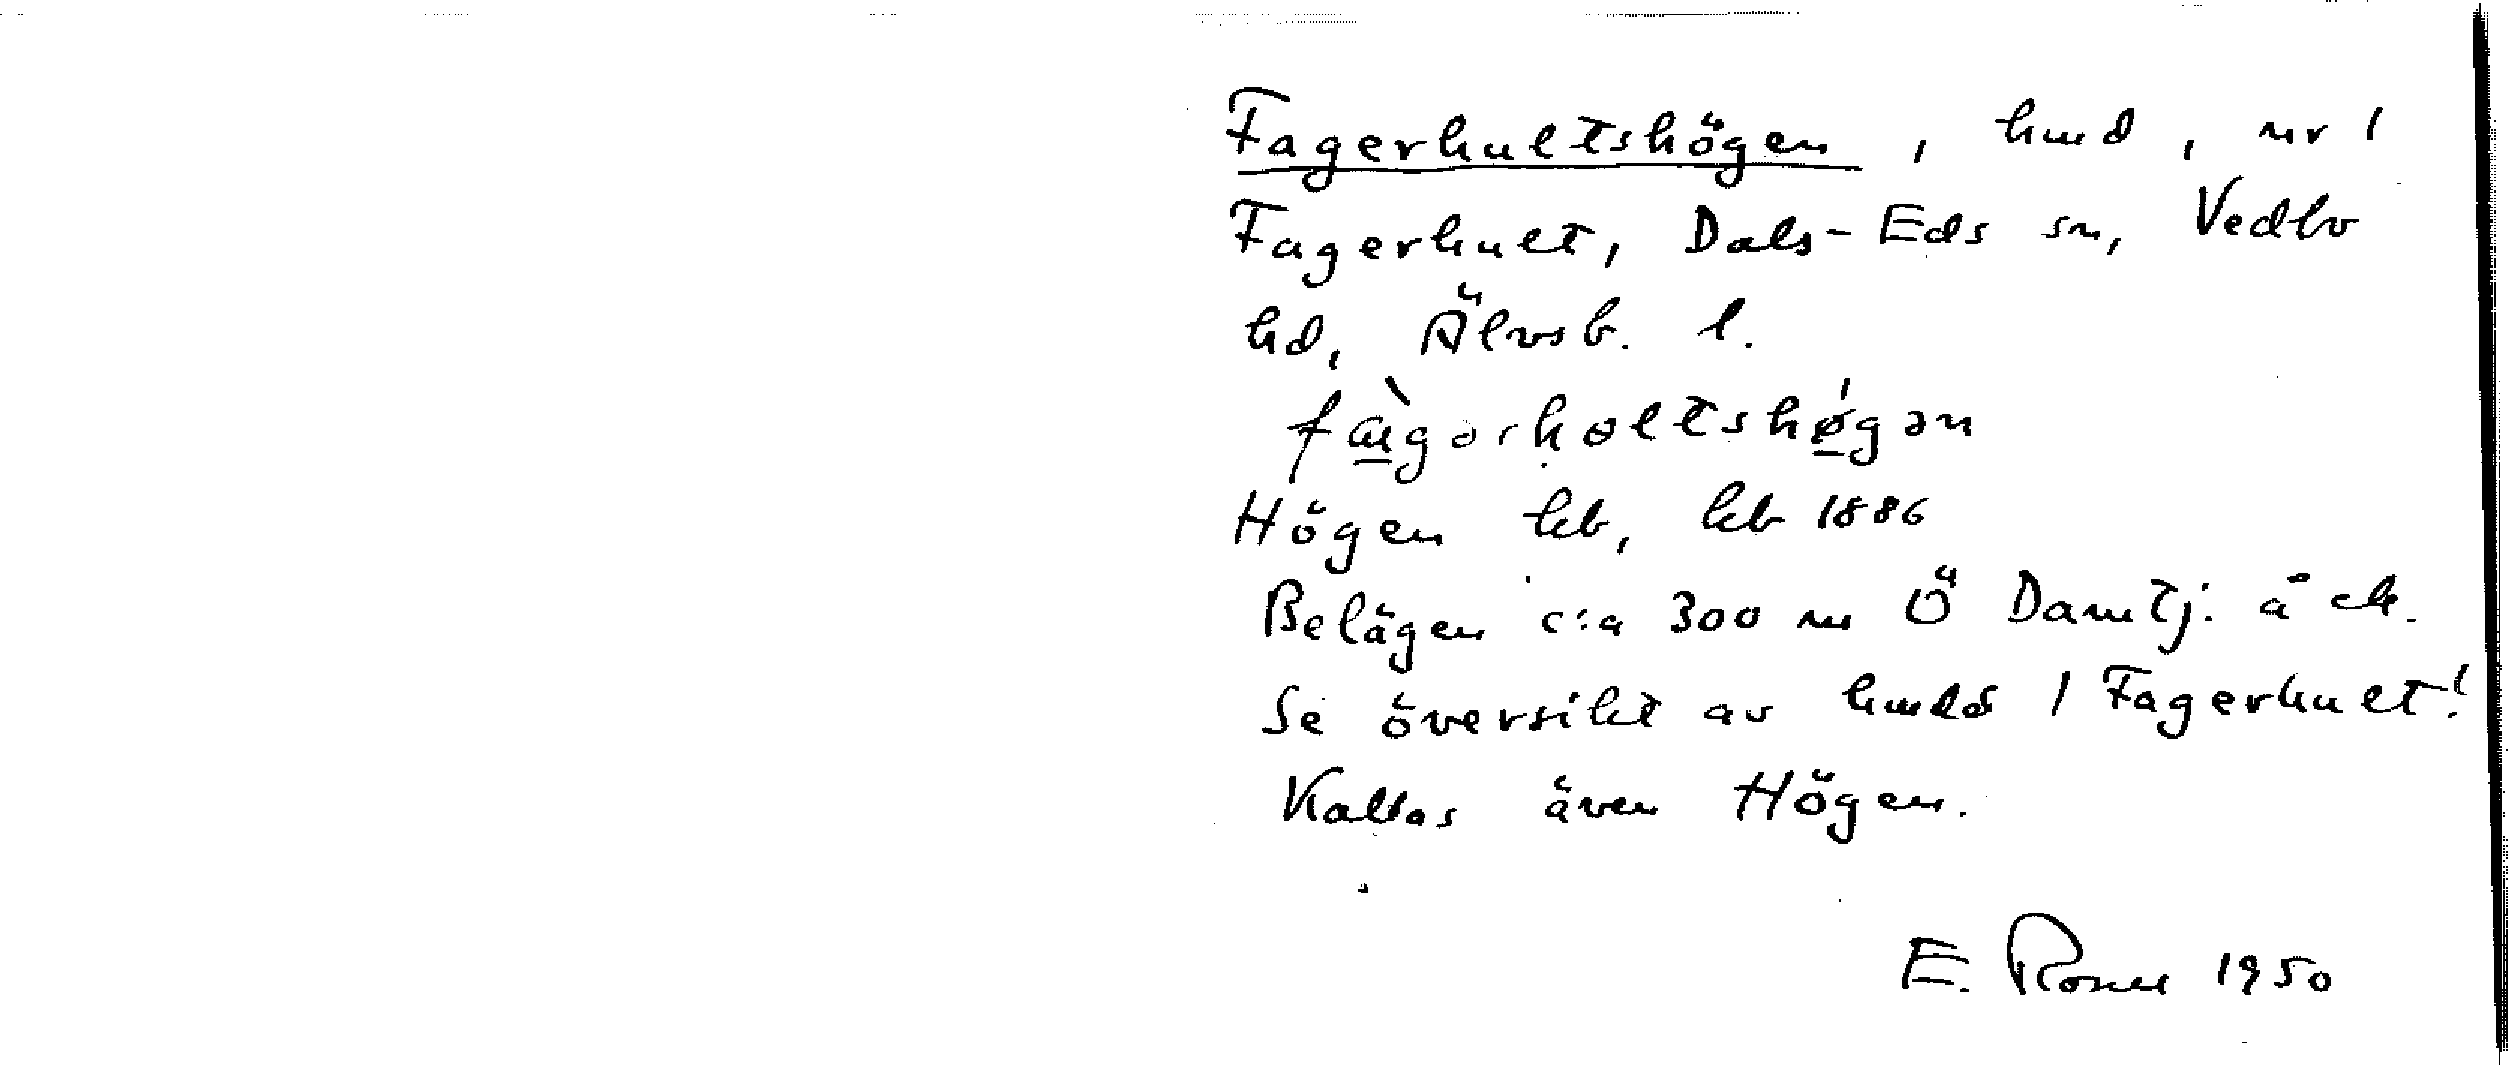 Fagerhultshögen, hmd, nr 1
Fagerhult, Dals-Eds sn, Vedbo
hd, Älvsb. l.
Högen kb, kb 1886
Belägen c:a 300 m Ö Damtj. å ek.
Se översikt av hmds 1 Fagerhult!
Kallas även Högen.
E. 1950